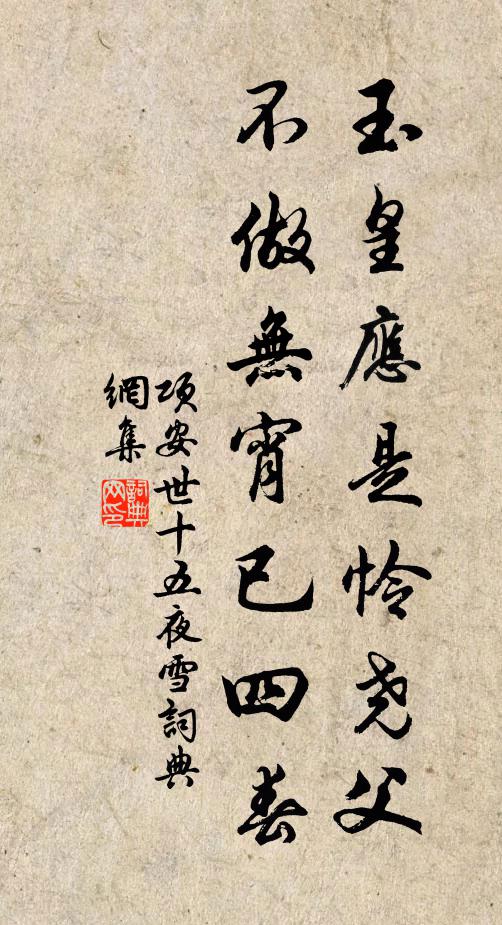 玉皇應是怜尧父
不做無宵已四春
项安世十五夜雪詞典
網集
詞典
网印